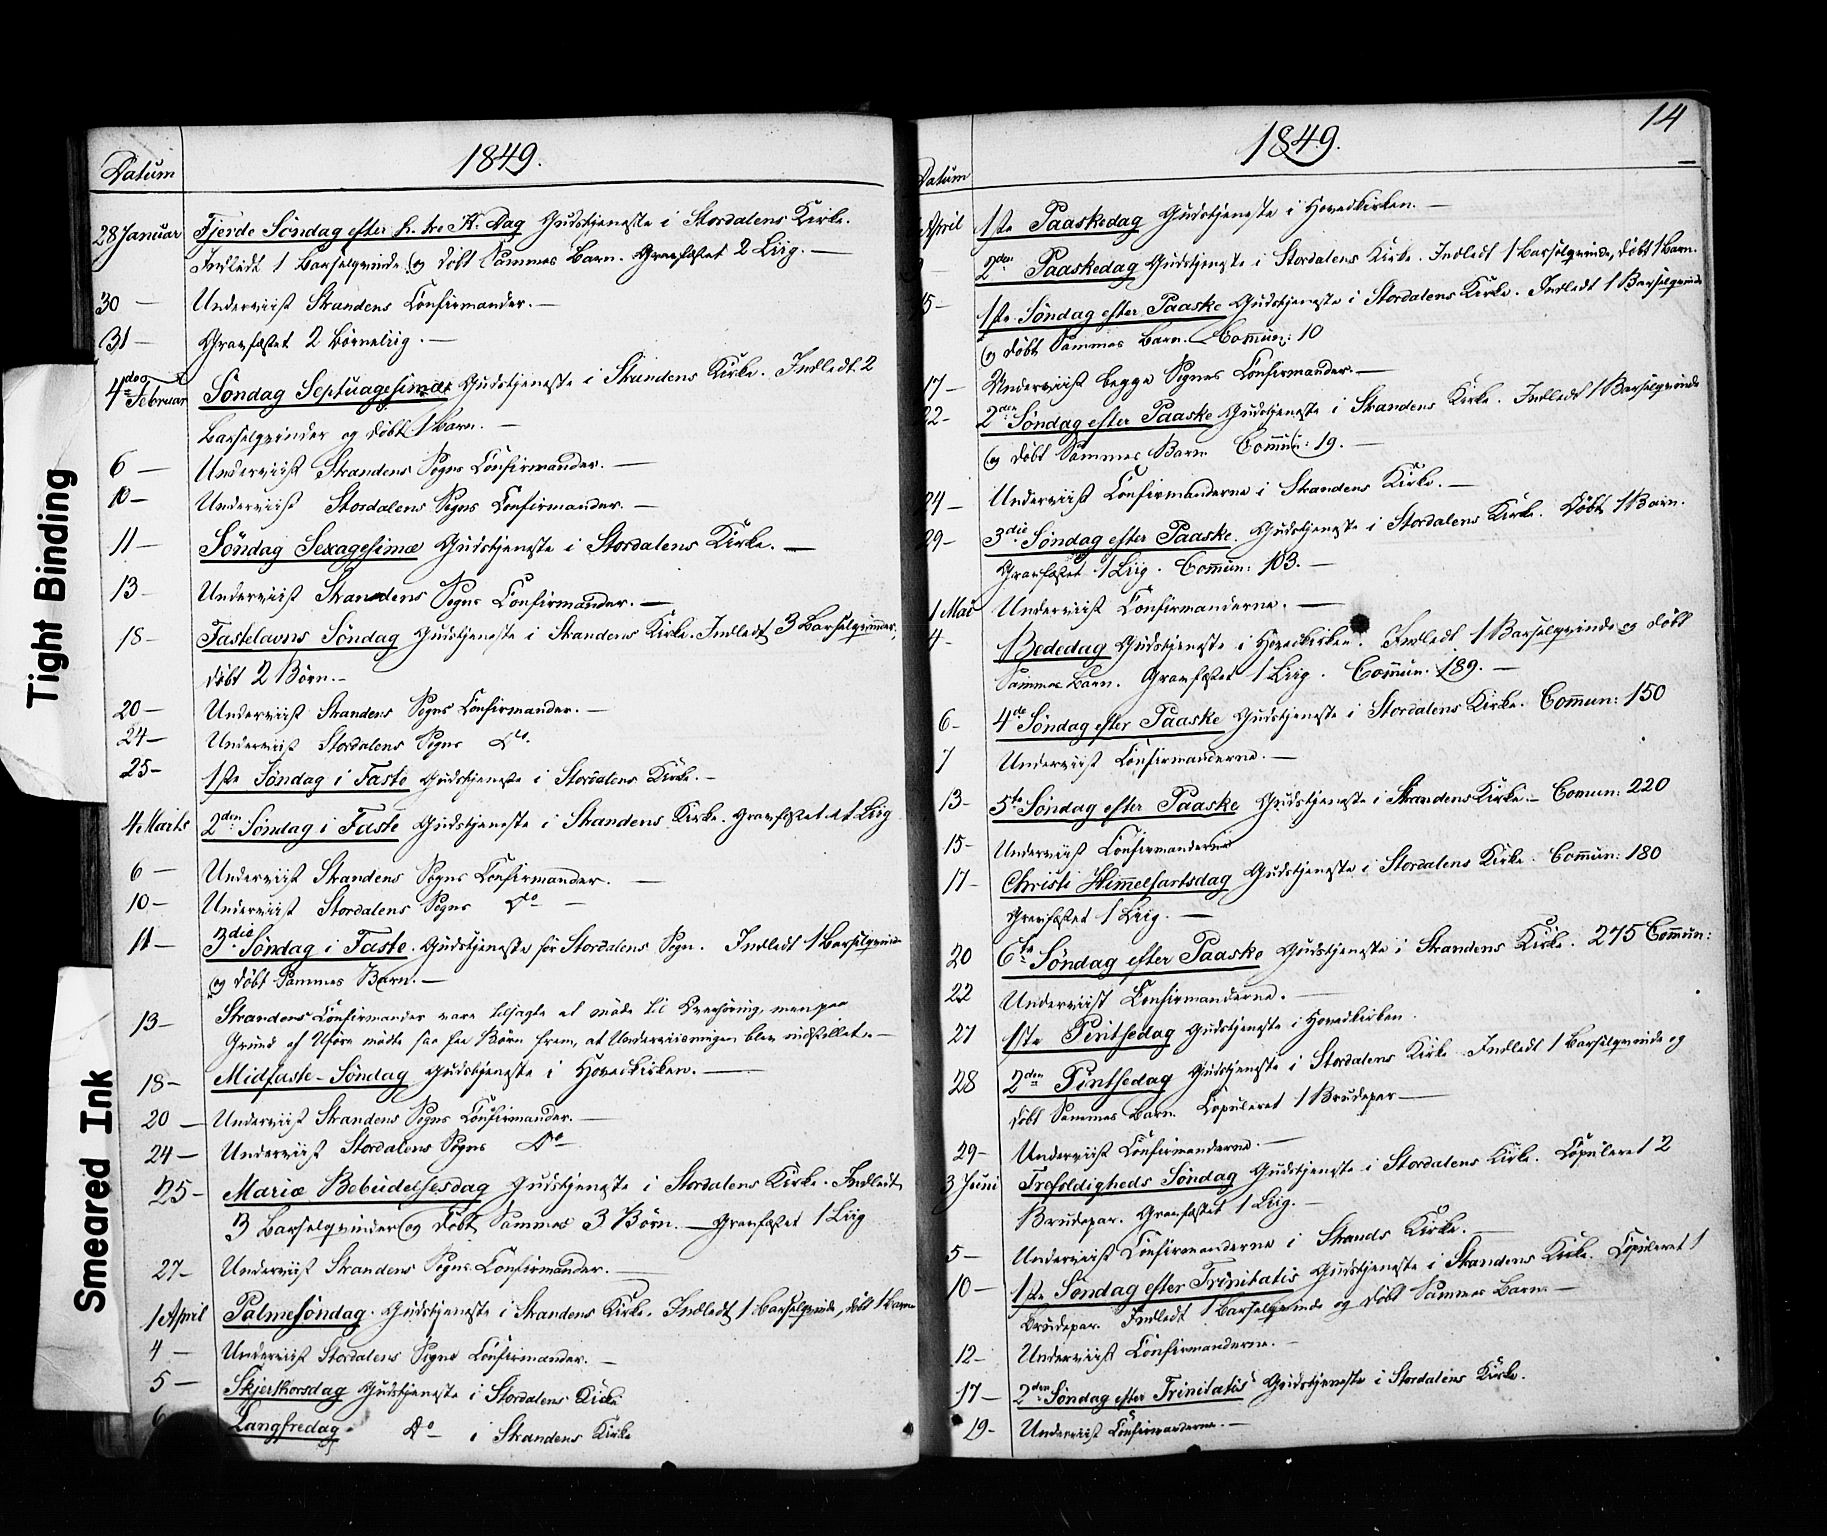 14
Tight Binding
Smeared Ink
1849.
Datum
28 Januar Fjerde Søndag efter h. tre K. dag Gudstjeneste i Stordalens Kirke.
Indledt 1 Barselqvinde og døbt Sammes Barn. Gravfæstet 2 Liig. —
30 — Underviist Strandens Confirmander. —
31 — Gravfæstet 2 Børneliig. —
4de Februar Søndag Septuagesimæ Gudstjeneste i Strandens Kirke. Indledt 2
Barselqvinder og døbt 1 Barn. —
6 — Underviist Strandens Sogns Confirmander. —
10 — Underviist Stordalens Sogns Confirmander. —
11 — Søndag Sexagesimæ Gudstjeneste i Stordalens Kirke. —
13 — Underviist Strandens Sogns Confirmander. —
18 — Fastelavns Søndag Gudstjeneste i Strandens Kirke. Indledt 3 Barselqvinder,
døbt 2 Børn. —
20 — Underviist Strandens Sogns Confirmander. —
24 — Underviist Stordalens Sogns Do.
25 — 1ste Søndag i Faste Gudstjeneste i Stordalens Kirke. —
4 Marts 2den Søndag i Faste Gudstjeneste i Strandens Kirke. Gravfæstet et Liig
6 — Underviist Strandens Sogns Confirmander. —
10 — Underviist Stordalens Sogns Do —
11 — 3die Søndag i Faste. Gudstjeneste for Stordalens Sogn. Indledt 1 Barselqvinde
og døbt Sammes Barn. —
13 — Strandens Confirmander vare tilsagte at møde til Overhøring, men paa
Grund af Uføre mødte saa faa Børn frem, at Underviisningen blev indstillet. —
18 — Midfaste-Søndag Gudstjeneste i Hovedkirken. —
20 — Underviist Strandens Sogns Confirmander. —
24 — Underviist Stordalens Sogns Do —
25 — Mariæ Bebudelsesdag Gudstjeneste i Stordalens Kirke. Indledt
3 Barselqvinder og døbt Sammes 3 Børn. — Gravfæstet 1 Liig
27 — Underviist Strandens Sogns Confirmander. —
1 April Palmesøndag. Gudstjeneste i Strandens Kirke. Indledt 1 Barselqvinde, døbt 1 Barn
4 — Underviist Stordalens Sogns Confirmander. —
5 — Skjerthorsdag Gudstjeneste i Stordalens Kirke
6 Langfredag Do — i Strandens Kirke
1849.
Datum
April 1ste Paaskedag Gudstjeneste i Hovedkirken. —
2den Paaskedag Gudstjeneste i Stordalens Kirke. Indledt 1 Barselqvinde, døbt 1 Barn.
15 — 1ste Søndag efter Paaske Gudstjeneste i Stordalens Kirke. Indledt 1 Barselqvinde
og døbt Sammes Barn. Commun: 10
17 — Underviist begge Sognes Confirmander. —
22 — 2den Søndag efter Paaske Gudstjeneste i Strandens Kirke. Indledt 1 Barselqvinde
og døbt Sammes Barn Commun: 19. —
24 — Underviist Confirmanderne i Strandens Kirke. —
29 — 3die Søndag efter Paaske. Gudstjeneste i Stordalens Kirke. Døbt 1 Barn.
Gravfæstet 1 Liig. Commun: 103. —
1 Mai Underviist Confirmanderne. —
4 — Bededag Gudstjeneste i Hovedkirken. Indledt 1 Barselqvinde og døbt
Sammes Barn. Gravfæstet 1 Liig. Commun. 189. —
6 — 4de Søndag efter Paaske Gudstjeneste i Stordalens Kirke. Commun: 150
7 Underviist Confirmanderne. —
13 — 5te Søndag efter Paaske Gudstjeneste i Strandens Kirke. — Comun: 220
15 — Underviist Confirmanderne
17 — Christi Himmelfartsdag Gudstjeneste i Stordalens Kirke. Commun: 180
Gravfæstet 1 Liig. —
20 6te Søndag efter Paaske Gudstjeneste i Strandens Kirke. 275 Commun:
22 Underviist Confirmanderne. —
27 1ste Pintsedag Gudstjeneste i Hovedkirken.
28 2den Pintsedag Gudstjeneste i Stordalens Kirke Indledt 1 Barselqvinde og
døbt Sammes Barn. Copuleret 1 Brudepar —
29 — Underviist Confirmanderne. —
3 Juni Trefoldigheds Søndag Gudstjeneste i Stordalens Kirke. Copuleret 2
Brudepar. Gravfæstet 1 Liig. —
5 — Underviist Confirmanderne i Strands Kirke. —
10 — 1ste Søndag efter Trinitatis Gudstjeneste i Strandens Kirke. Copuleret 1
Brudepar. Indledt 1 Barselqvinde og døbt Sammes Barn. —
12 — Underviist Confirmanderne. —
17 — 2den Søndag efter Trinitatis Gudstjeneste i Stordalens Kirke.
19 — Underviist Confirmanderne. —